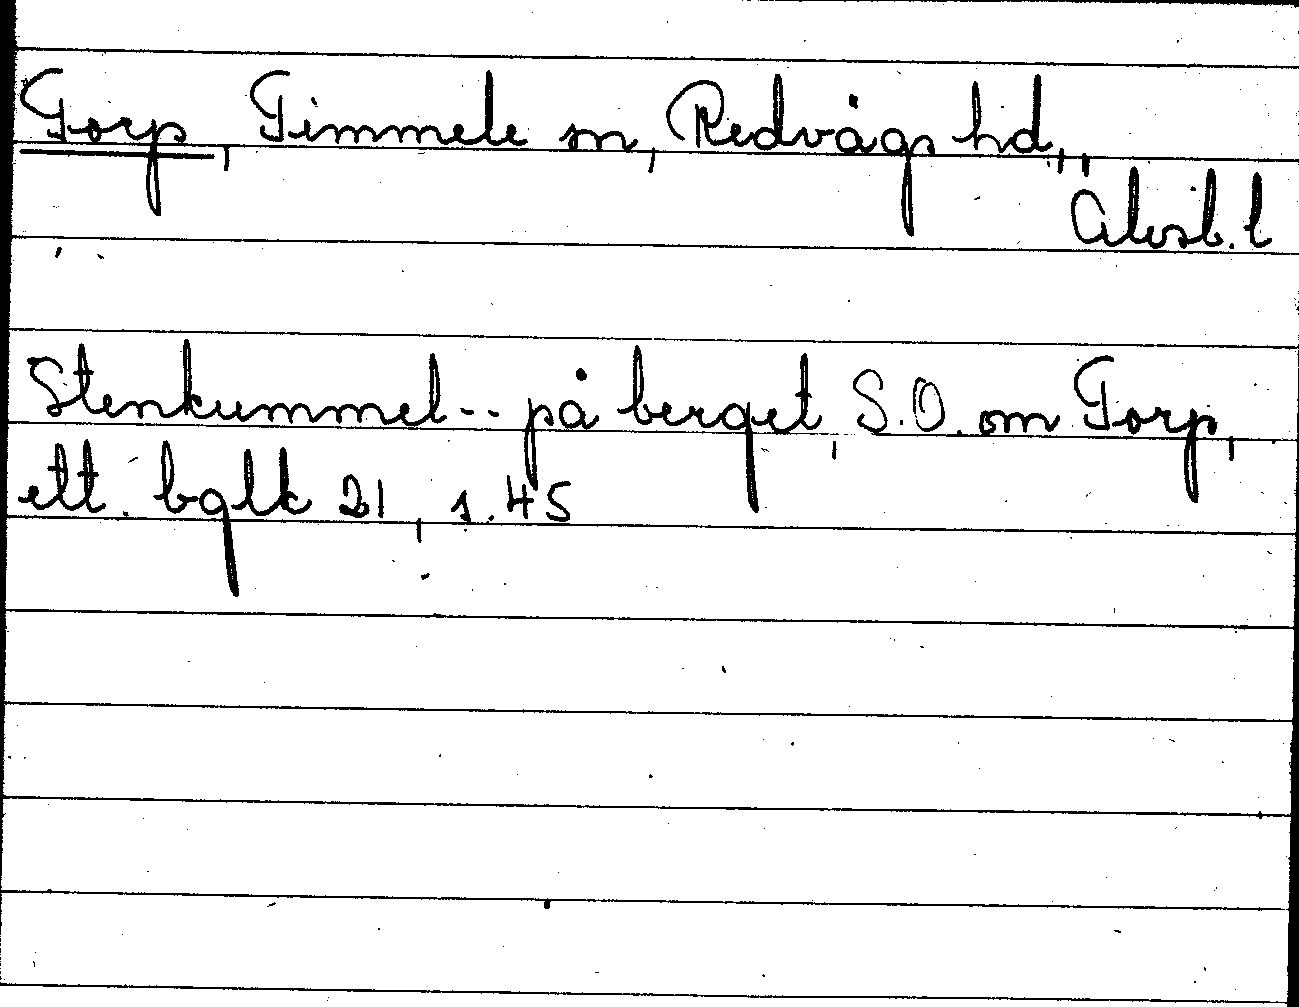 Torp, Timmele sn, Redvägs hd,,
Älvsb. l
Stenkummel-- på berget, S.O. om Torp,
ell. bglk 21, s. 45